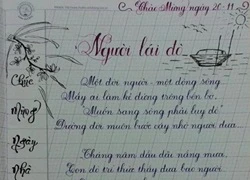 Chúc Mừng ngày 20-11
Người lái đò
Chúc
Mừng
Ngày
Nhà
Một đời người - một dòng sông
Mấy ai làm kẻ đứng trông bến bờ,
"Muốn sang sông phải lụy đò"
Đường đời muôn bước cậy nhờ người đưa...
Tháng năm dầu dãi nắng mưa,
Con đò trí thức thầy đưa bao người.